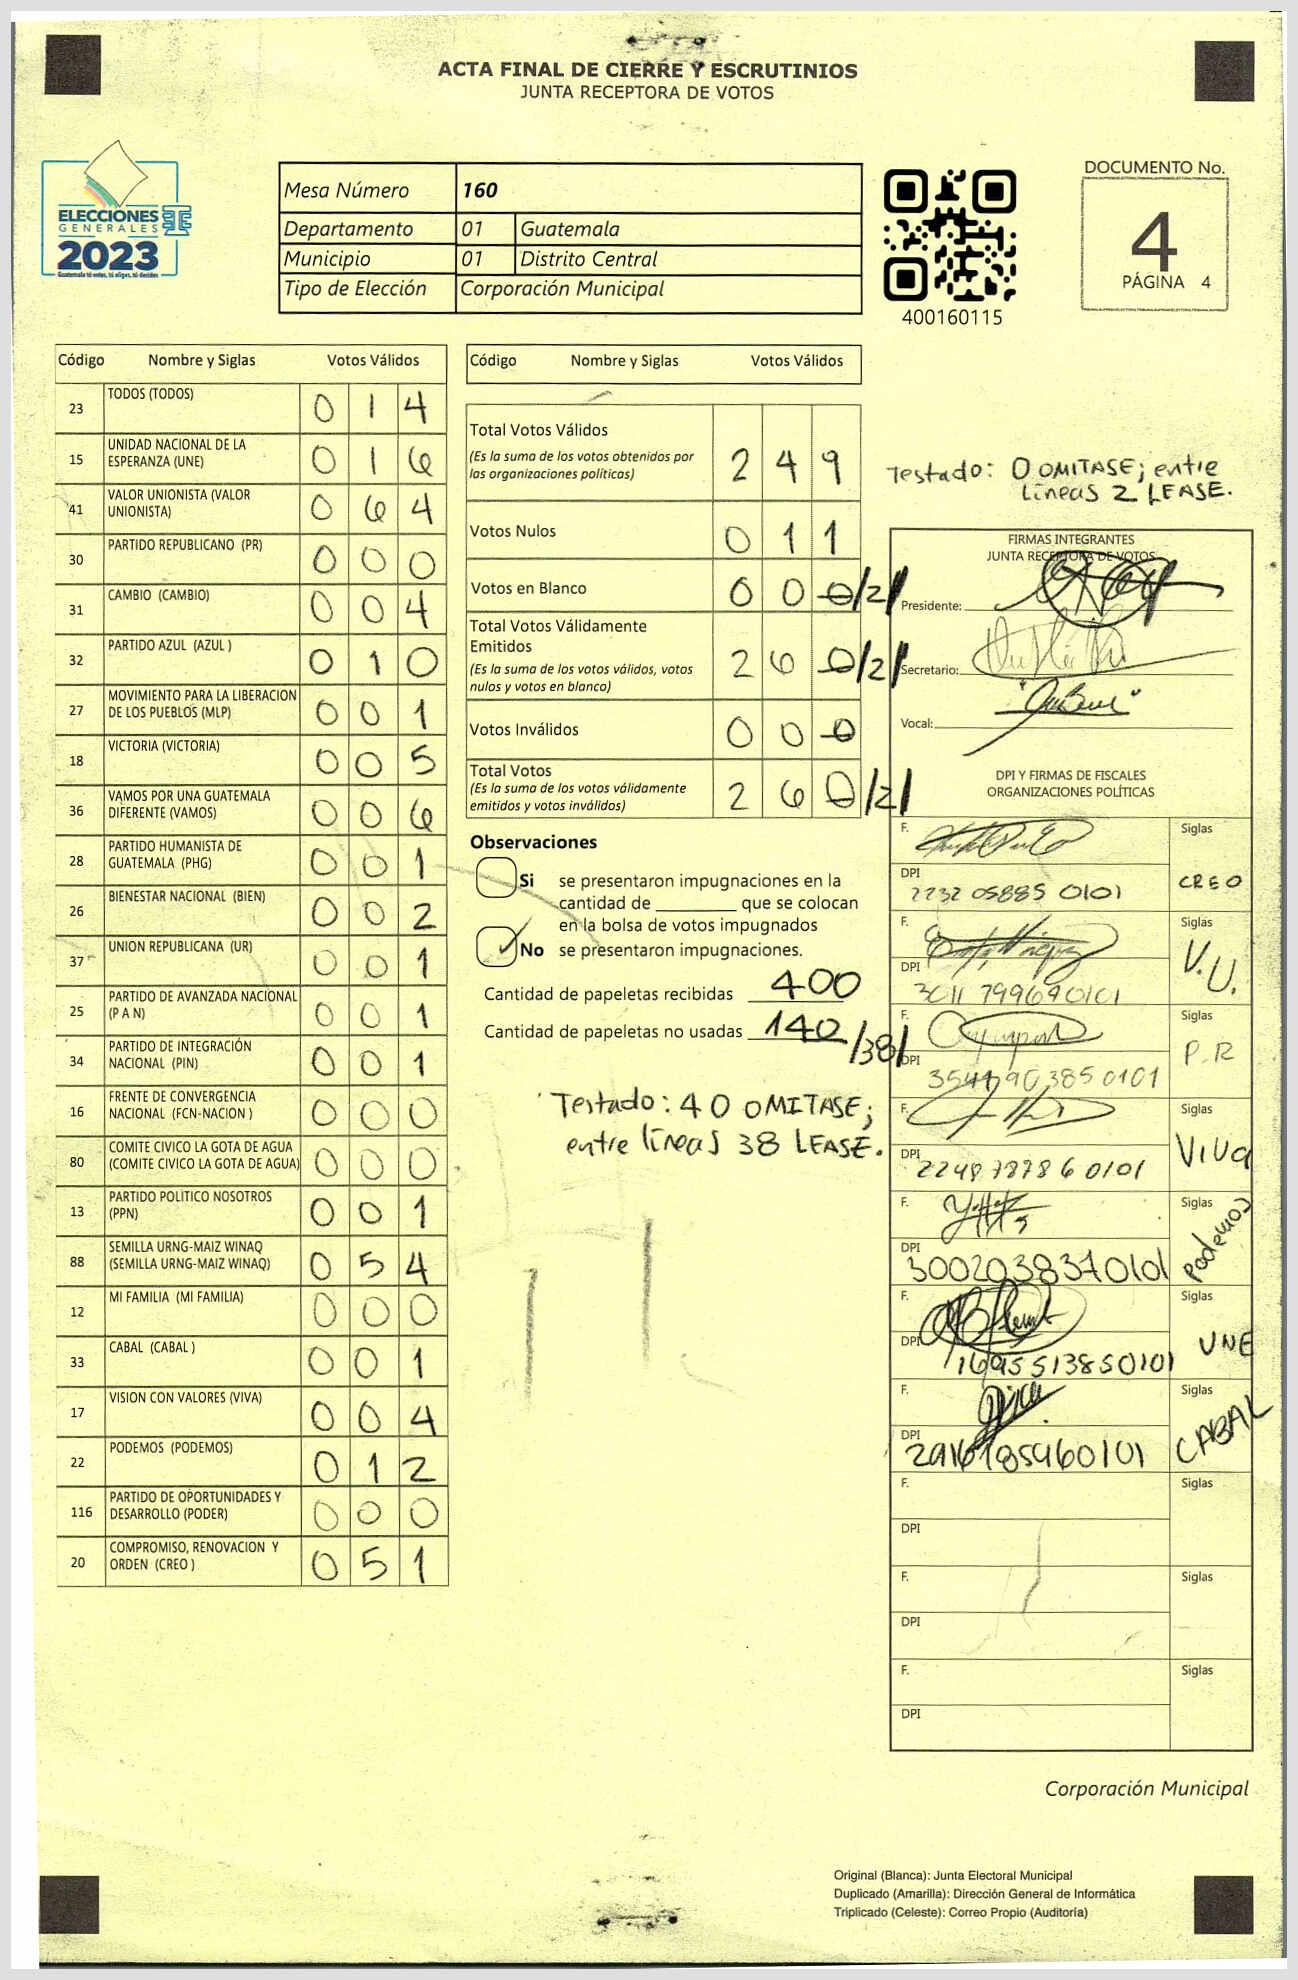 ACTA FINAL DE CIERRE Y ESCRUTINIOS
JUNTA RECEPTORA DE VOTOS
ELECCIONES
GENERALES
2023
Guatemala tú votas, tú eliges, tú decides
Mesa Número 160
Departamento 01 Guatemala
Municipio 01 Distrito Central
Tipo de Elección Corporación Municipal
400160115
DOCUMENTO No.
4
PÁGINA 4
Código Nombre y Siglas Votos Válidos
23 TODOS (TODOS) 0 1 4
15 UNIDAD NACIONAL DE LA ESPERANZA (UNE) 0 1 6
41 VALOR UNIONISTA (VALOR UNIONISTA) 0 6 4
30 PARTIDO REPUBLICANO (PR) 0 0 0
31 CAMBIO (CAMBIO) 0 0 4
32 PARTIDO AZUL (AZUL ) 0 1 0
27 MOVIMIENTO PARA LA LIBERACION DE LOS PUEBLOS (MLP) 0 0 1
18 VICTORIA (VICTORIA) 0 0 5
36 VAMOS POR UNA GUATEMALA DIFERENTE (VAMOS) 0 0 6
28 PARTIDO HUMANISTA DE GUATEMALA (PHG) 0 0 1
26 BIENESTAR NACIONAL (BIEN) 0 0 2
37 UNION REPUBLICANA (UR) 0 0 1
25 PARTIDO DE AVANZADA NACIONAL (P A N) 0 0 1
34 PARTIDO DE INTEGRACIÓN NACIONAL (PIN) 0 0 1
16 FRENTE DE CONVERGENCIA NACIONAL (FCN-NACION ) 0 0 0
80 COMITE CIVICO LA GOTA DE AGUA (COMITE CIVICO LA GOTA DE AGUA) 0 0 0
13 PARTIDO POLÍTICO NOSOTROS (PPN) 0 0 1
88 SEMILLA URNG-MAIZ WINAQ (SEMILLA URNG-MAIZ WINAQ) 0 5 4
12 MI FAMILIA (MI FAMILIA) 0 0 0
33 CABAL (CABAL ) 0 0 1
17 VISION CON VALORES (VIVA) 0 0 4
22 PODEMOS (PODEMOS) 0 1 2
116 PARTIDO DE OPORTUNIDADES Y DESARROLLO (PODER) 0 0 0
20 COMPROMISO, RENOVACION Y ORDEN (CREO ) 0 5 1
Código Nombre y Siglas Votos Válidos
Total Votos Válidos 2 4 9
(Es la suma de los votos obtenidos por
las organizaciones políticas)
Votos Nulos 0 1 1
Votos en Blanco 0 0 0 /2/
Total Votos Válidamente
Emitidos 2 6 0 /2/
(Es la suma de los votos válidos, votos
nulos y votos en blanco)
Votos Inválidos 0 0 0
Total Votos 2 6 0 /2/
(Es la suma de los votos válidamente
emitidos y votos inválidos)
Observaciones
Si se presentaron impugnaciones en la
cantidad de ________ que se colocan
en la bolsa de votos impugnados
No se presentaron impugnaciones.
Cantidad de papeletas recibidas 400
Cantidad de papeletas no usadas 140 /38/
Testado: 40 OMITASE;
entre líneas 38 LEASE.
Testado: 0 OMITASE; entre
líneas 2 LEASE.
FIRMAS INTEGRANTES
JUNTA RECEPTORA DE VOTOS
Presidente:
Secretario:
Vocal:
DPI Y FIRMAS DE FISCALES
ORGANIZACIONES POLÍTICAS
F. Siglas
DPI 2232 05885 0101 CREO
F. Siglas
DPI 3011 799690101 V.U.
F. Siglas
DPI P.R
F. Siglas
DPI 2248787860101 VIVA
F. Siglas
DPI 3002038370101 Podemos
F. Siglas
DPI 1695513850101 UNE
F. Siglas
DPI CABAL
F. Siglas
DPI
F. Siglas
DPI
F. Siglas
DPI
Corporación Municipal
Original (Blanca): Junta Electoral Municipal
Duplicado (Amarilla): Dirección General de Informática
Triplicado (Celeste): Correo Propio (Auditoría)